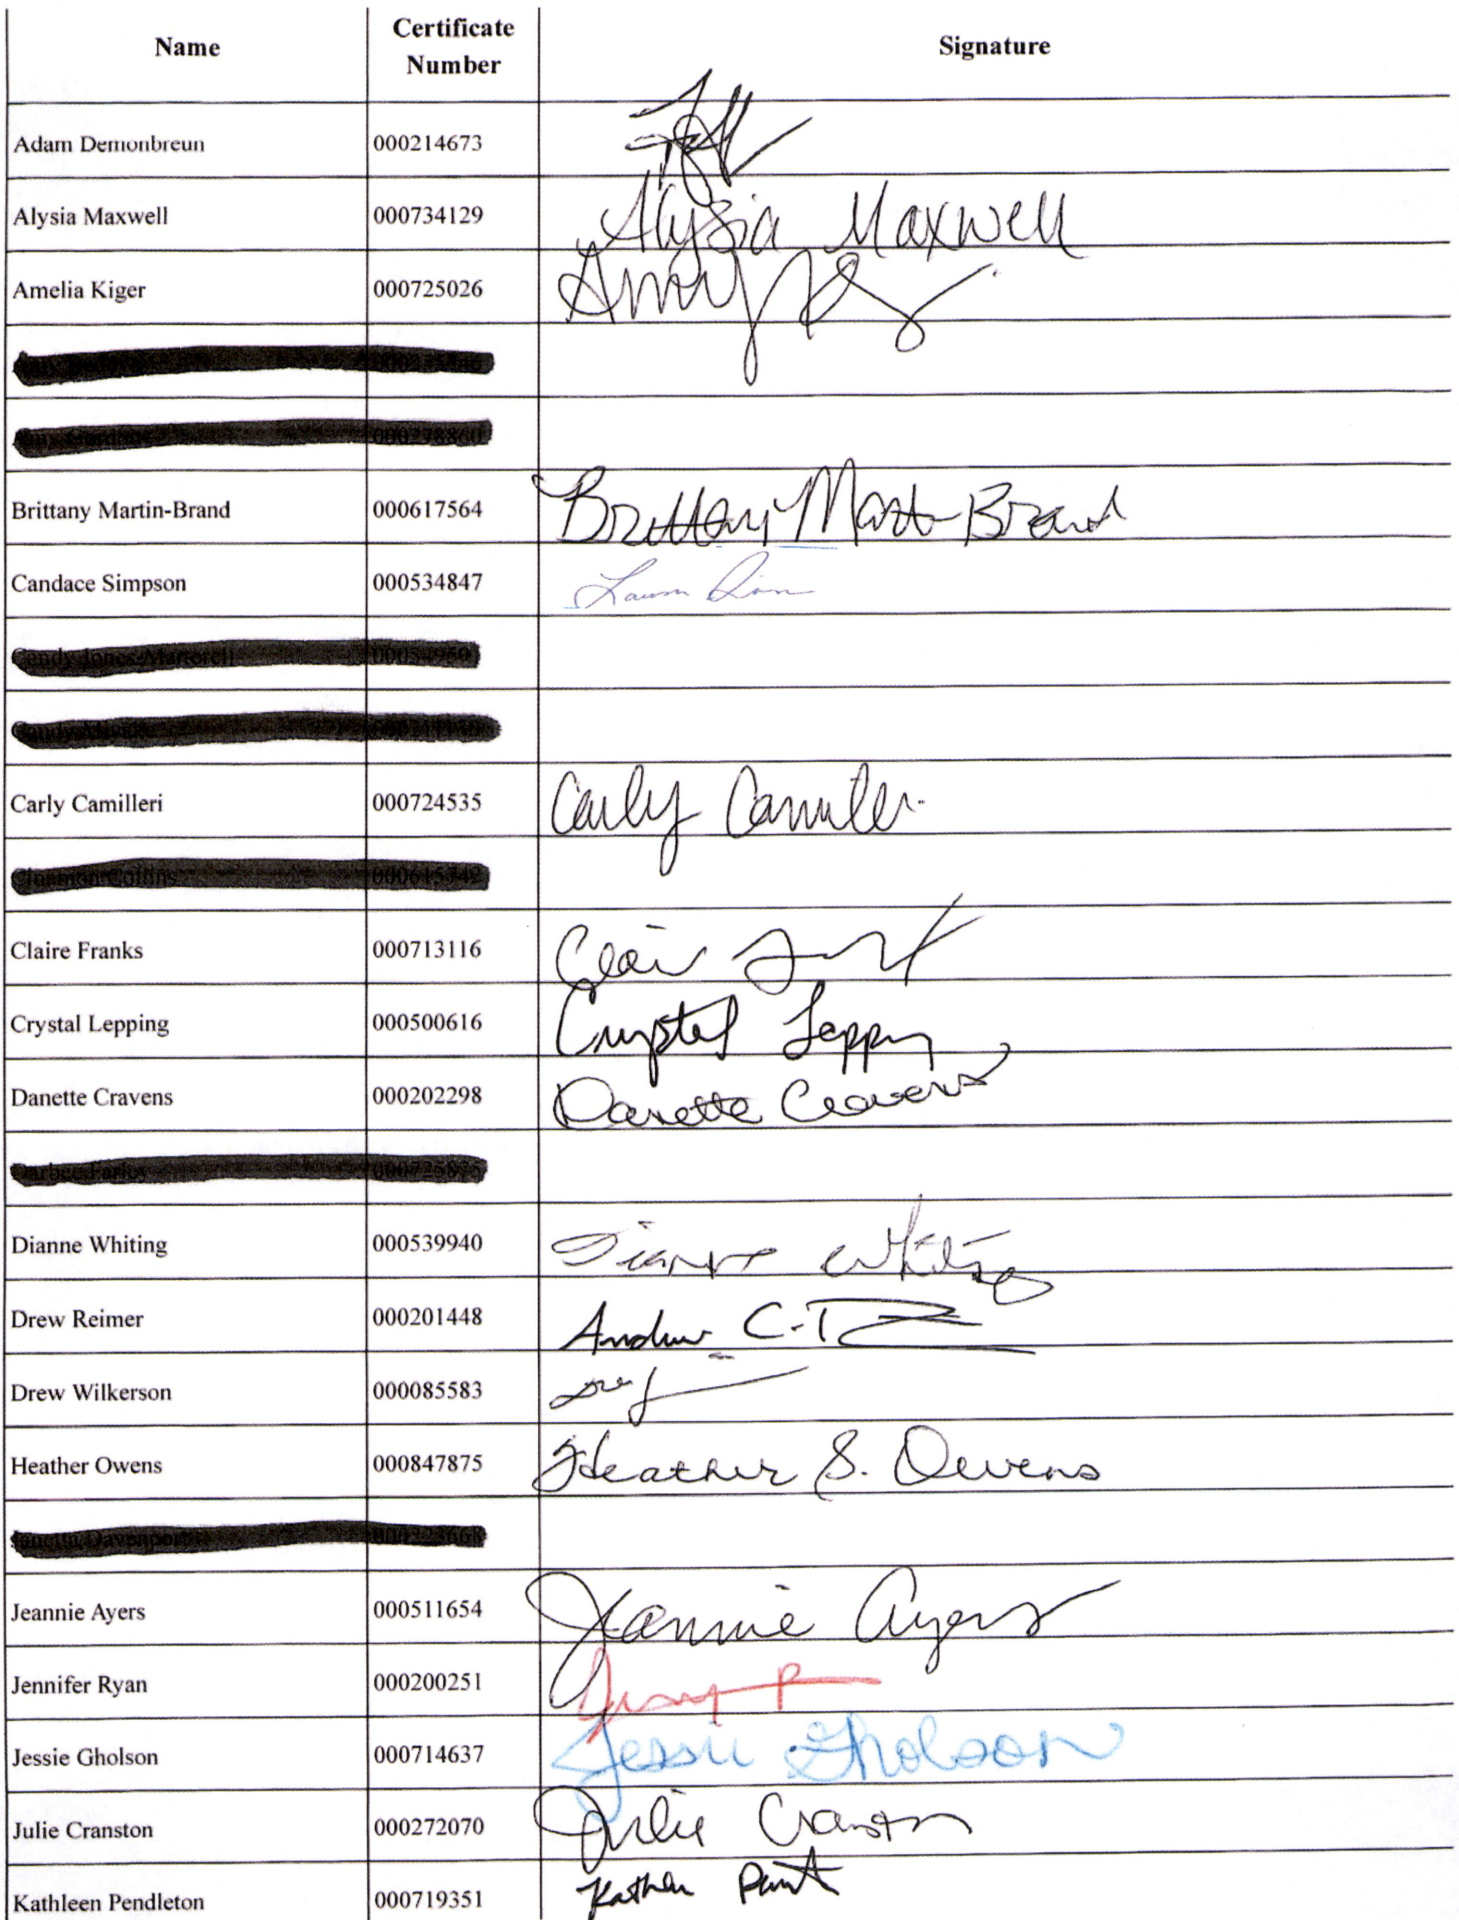 Name Certificate Number Signature
Adam Demonbreun 000214673
Alysia Maxwell 000734129 Alysia Maxwell
Amelia Kiger 000725026 Amy
Brittany Martin-Brand 000617564 Brittany Mart Brand
Candace Simpson 000534847
Carly Camilleri 000724535 Carly
Claire Franks 000713116
Crystal Lepping 000500616 Crystal
Danette Cravens 000202298 Danette Cravens
Dianne Whiting 000539940 Dianne Whiting
Drew Reimer 000201448 Andrew C.
Drew Wilkerson 000085583
Heather Owens 000847875 Heather S. Owens
Jeannie Ayers 000511654 Jeannie Ayers
Jennifer Ryan 000200251
Jessie Gholson 000714637 Jessie Gholson
Julie Cranston 000272070 Julie Cranston
Kathleen Pendleton 000719351